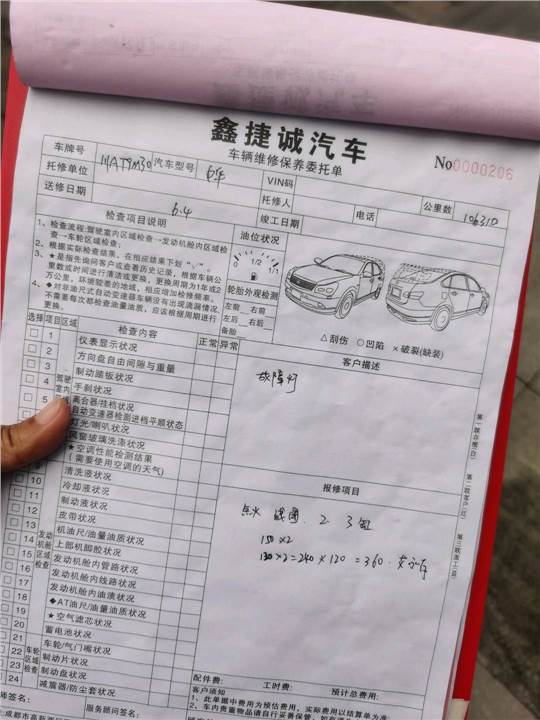 鑫捷诚汽车
车辆维修保养委托单
No0000206
车牌号
托修单位
汽车型号
VIN码
托修人
电话
公里数 106310
送修日期 6.4
竣工日期
检查项目说明
油位状况
1、检查流程:驾驶室内区域检查→发动机舱内区域检
查→车轮区域检查;
2、根据实际检查结果，在相应结果下划
3、★是指先询问客户或查看历史记录，根据车辆公
里数或时间进行清洁或更换，更换周期为1年或2
万公里，环境较差的地域，相应增加检修频率。
4、◆对非油尺式自动变速器车辆没有出现渗漏情况
不需要每次都检查油量油质，应该根据周期进行
更换
0 1/2 1/1
轮胎外观检测
左前 右前
左后 右后
备胎
△刮伤 ○凹陷 ×破裂(缺装)
选择 项目 区域 检查内容 正常 异常
客户描述
故障灯
1 仪表显示状况
2 方向盘自由间隙与重量
3 制动踏板状况
4 手刹状况
5 离合器/挂档状况
自动变速器检测进档平顺状态
灯光/喇叭状况
风窗玻璃洗涤状况
★空调性能检测结果
(需要使用空调的天气)
清洗液状况
10 冷却液状况
11 制动液状况
12 皮带状况
13 机油尺/油量油质状况
14 上部机脚胶状况
15 发动机舱内管路状况
16 发动机舱内线路状况
17 发动机舱内油渍状况
18 ◆AT油尺/油量油质状况
19 ★空气滤芯状况
20 蓄电池状况
21 车轮/气门嘴状况
22 制动片状况
23 制动盘状况
24 减震器/防尘套状况
发动机舱区域检查
车轮区域检查
报修项目
点火 线圈 2 3缸
150×2
130×2=240×120=360
第一联存根(白)
第二联客户(红)
第三联施工(蓝)
配件费: 工时费: 预计总费用:
客户须知
1、此单据中费用为预估费用，实际费用以结算单为准
2、车内贵重物品请自行妥善保管
师签名:
服务顾问签名: